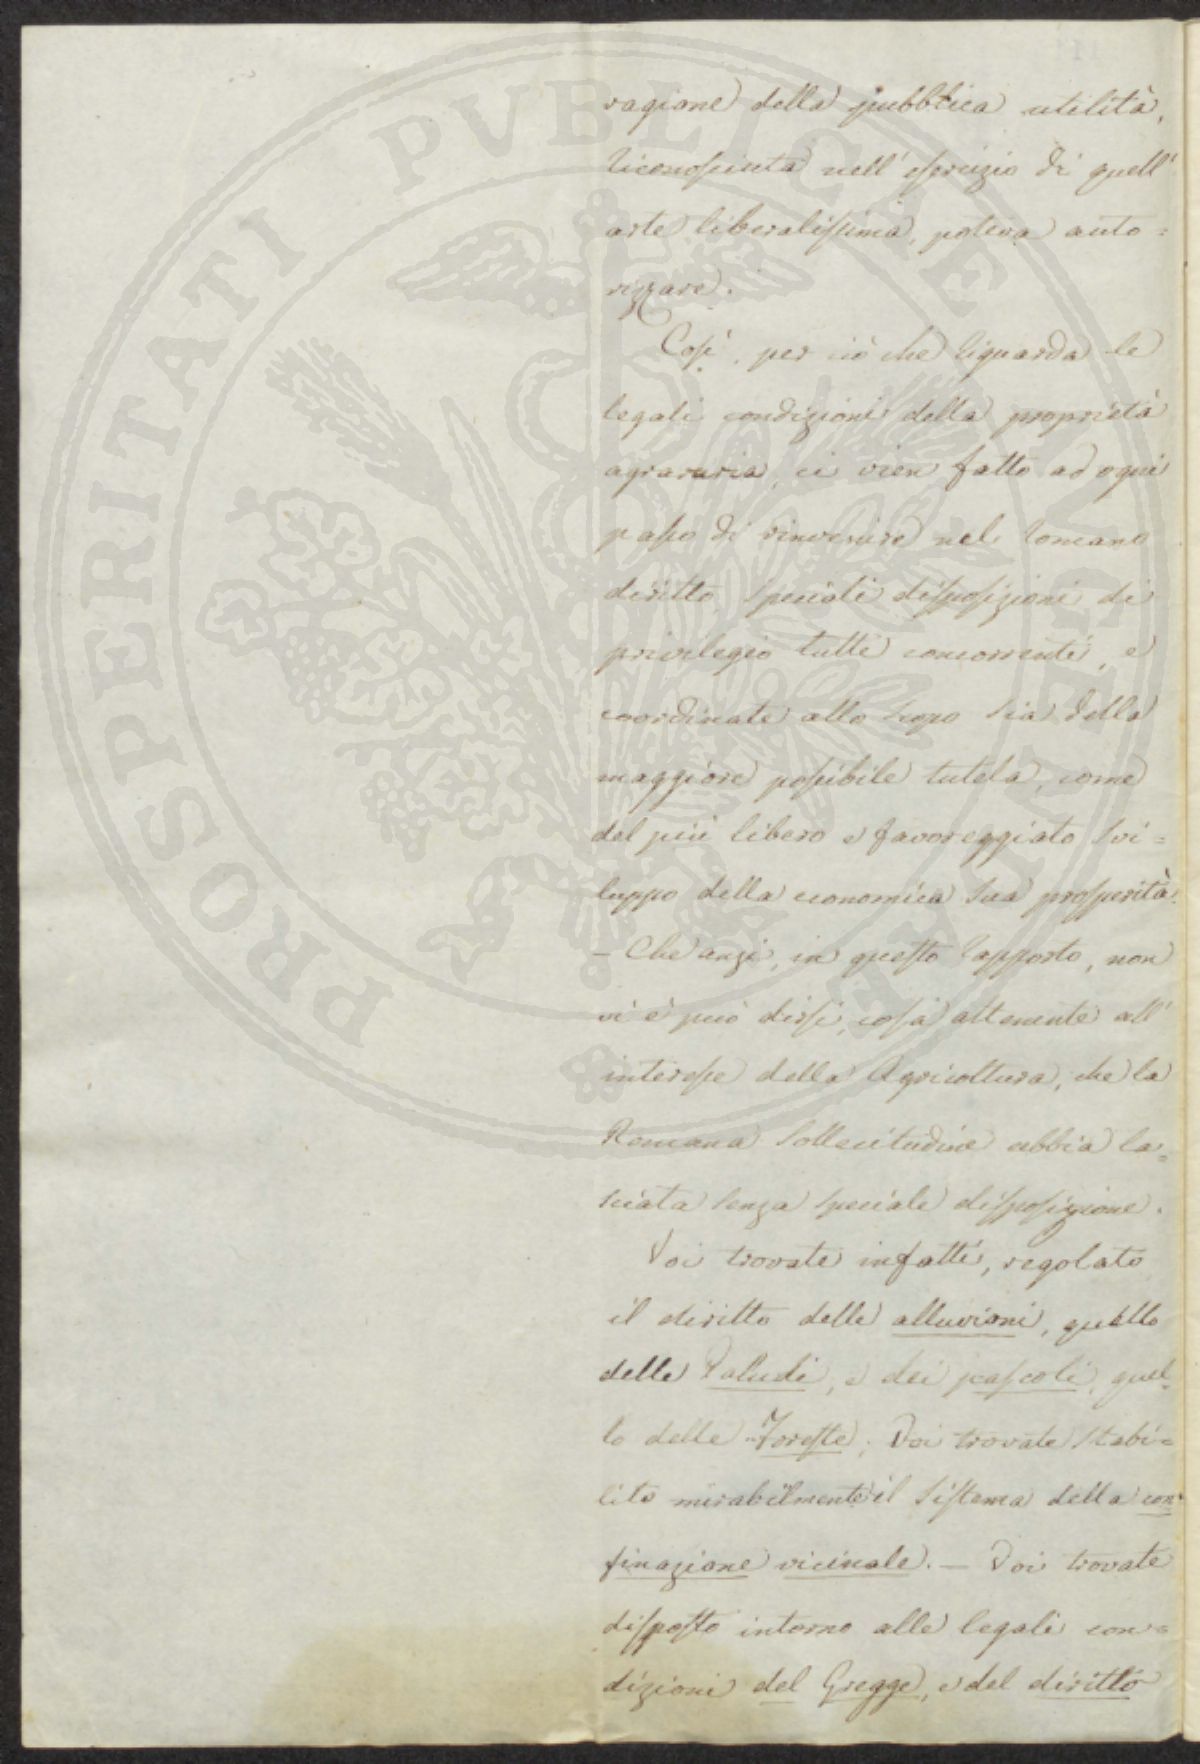 ragione della pubblica utilità,
riconosciuta nell'esercizio di quell'
arte liberalissima, poteva auto=
rizzare.
Così, per ciò che riguarda le
legali condizioni della proprietà
agraruria, ci vien fatto ad ogni
passo di rinvenire nel romano
diritto speciali disposizioni di
privilegio tutte concorrenti, e
coordinate allo scopo sia della
maggiore possibile tutela, come
del più libero e favoreggiato svi=
luppo della economica sua prosperità.
– Che anzi, in questo rapporto, non
vi è può dirsi, cosa attenente all'
interesse della Agricoltura, che la
Romana sollecitudine abbia la=
sciata senza speciale disposizione.
Voi trovate infatti, regolato
il diritto delle alluvioni, quello
delle Paludi, e dei pascoli, quel=
lo delle Foreste; Voi trovate stabi=
lito mirabilmente il sistema della con=
finazione vicinale. – Voi trovate
disposto intorno alle legali con=
dizioni del Gregge, e del diritto
PROSPERITATI PVBLICAE AVGENDAE